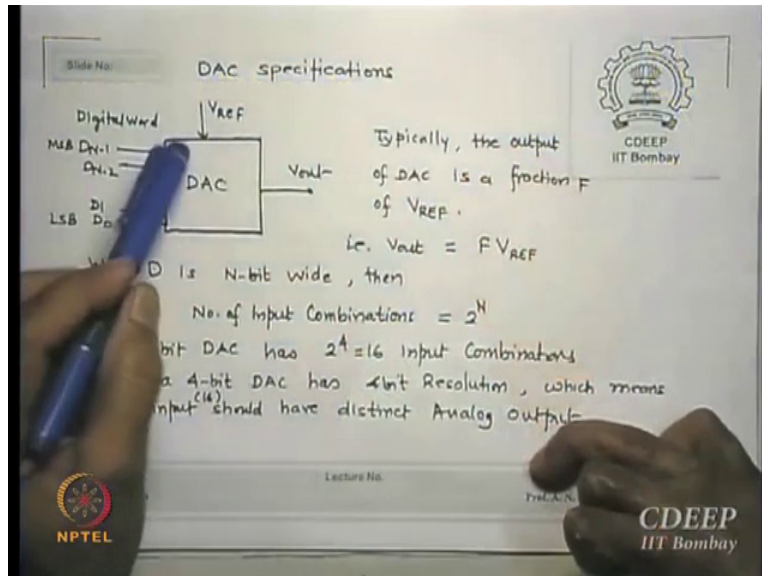 Slide No:
DAC specifications
CDEEP
IIT Bombay
Digital word
VREF
MSB DN-1
DN-2
DAC
Vout
D1
LSB D0
Typically, the output
of DAC is a fraction F
of VREF.
i.e. Vout = F VREF
D is N-bit wide, then
No. of Input Combinations = 2^N
bit DAC has 2^4 = 16 Input Combinations
a 4-bit DAC has 4bit Resolution, which means
input (16) should have distinct Analog output
Lecture No.
Prof. A. N.
NPTEL
CDEEP
IIT Bombay